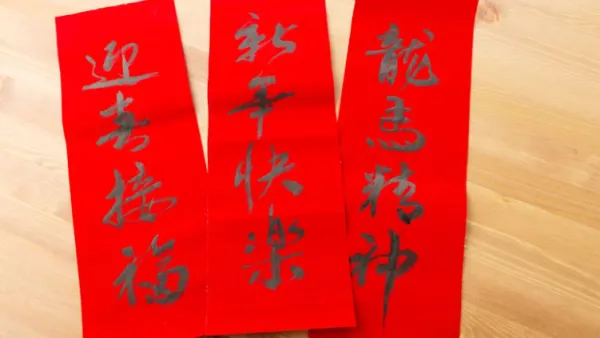 迎春接福
新年快樂
龍馬精神